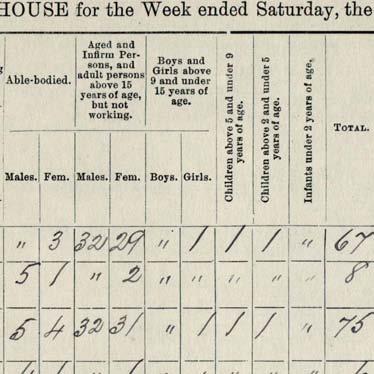 HOUSE for the Week ended Saturday, the
Able-bodied.
Aged and
Infirm Per-
sons, and
adult persons
above 15
years of age,
but not
working.
Boys and
Girls above
9 and under
15 years of
age.
Children above 5 and under 9
years of age.
Children above 2 and under 5
years of age.
Infants under 2 years of age.
TOTAL.
Males. Fem. Males. Fem. Boys. Girls.
" 3 32 29 " 1 1 1 " 67
5 1 " 2 " " " " " 8
5 4 32 31 " 1 1 1 " 75